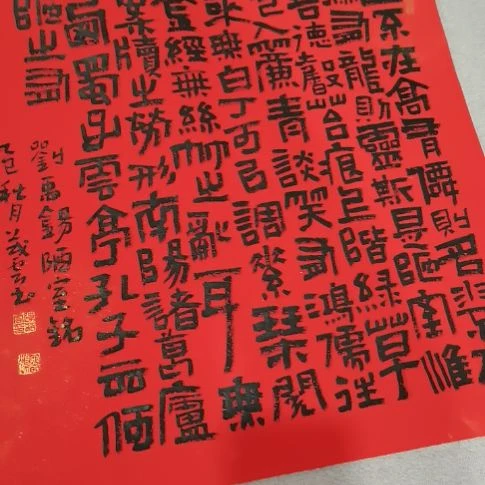 不在高有僊則名水
有龍則靈斯是陋室惟
吾德馨苔痕上階綠草
色入簾青談笑有鴻儒往
來無白丁可以調素琴閱
金經無絲竹之亂耳無
案牘之勞形南陽諸葛廬
西蜀子雲亭孔子云何
陋之有
劉禹錫陋室銘
秋月 書